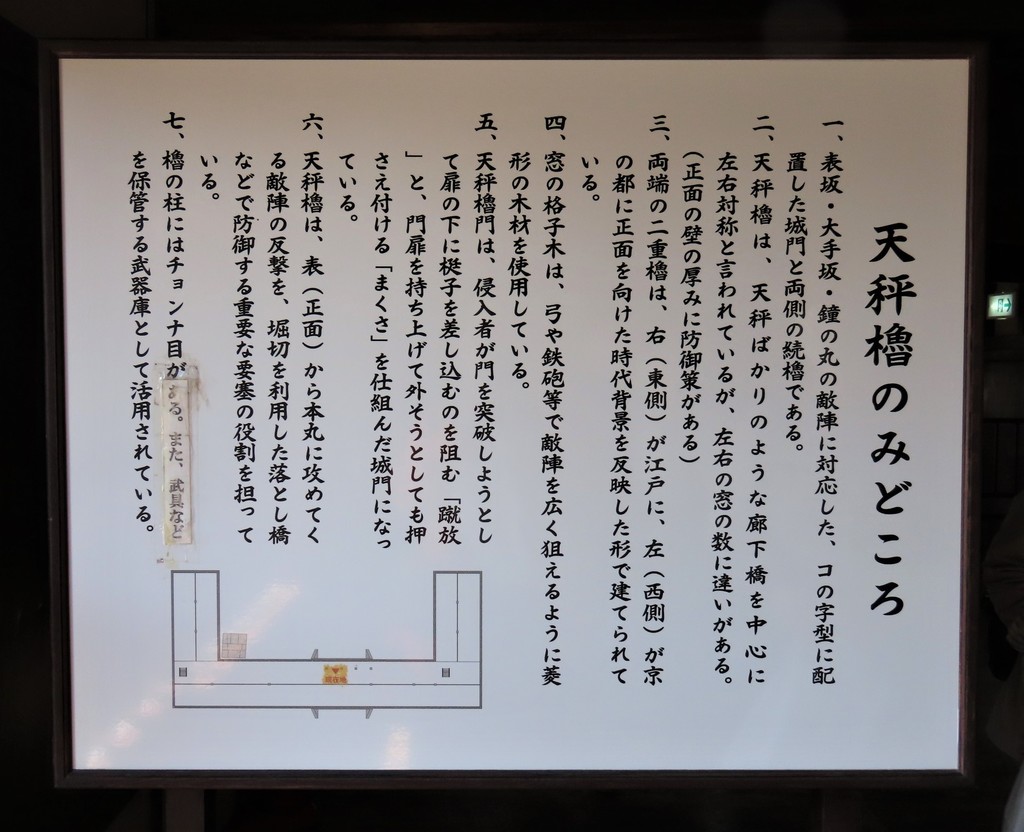 天秤櫓のみどころ
一、表坂・大手坂・鐘の丸の敵陣に対応した、コの字型に配
置した城門と両側の続櫓である。
二、天秤櫓は、天秤ばかりのような廊下橋を中心に
左右対称と言われているが、左右の窓の数に違いがある。
(正面の壁の厚みに防御策がある)
三、両端の二重櫓は、右(東側)が江戸に、左(西側)が京
の都に正面を向けた時代背景を反映した形で建てられて
いる。
四、窓の格子木は、弓や鉄砲等で敵陣を広く狙えるように菱
形の木材を使用している。
五、天秤櫓門は、侵入者が門を突破しようとし
て扉の下に梃子を差し込むのを阻む「蹴放
」と、門扉を持ち上げて外そうとしても押
さえ付ける「まくさ」を仕組んだ城門になっ
ている。
六、天秤櫓は、表(正面)から本丸に攻めてく
る敵陣の反撃を、堀切を利用した落とし橋
などで防御する重要な要塞の役割を担って
いる。
七、櫓の柱にはチョンナ目がある。また、武具など
を保管する武器庫として活用されている。
現在地